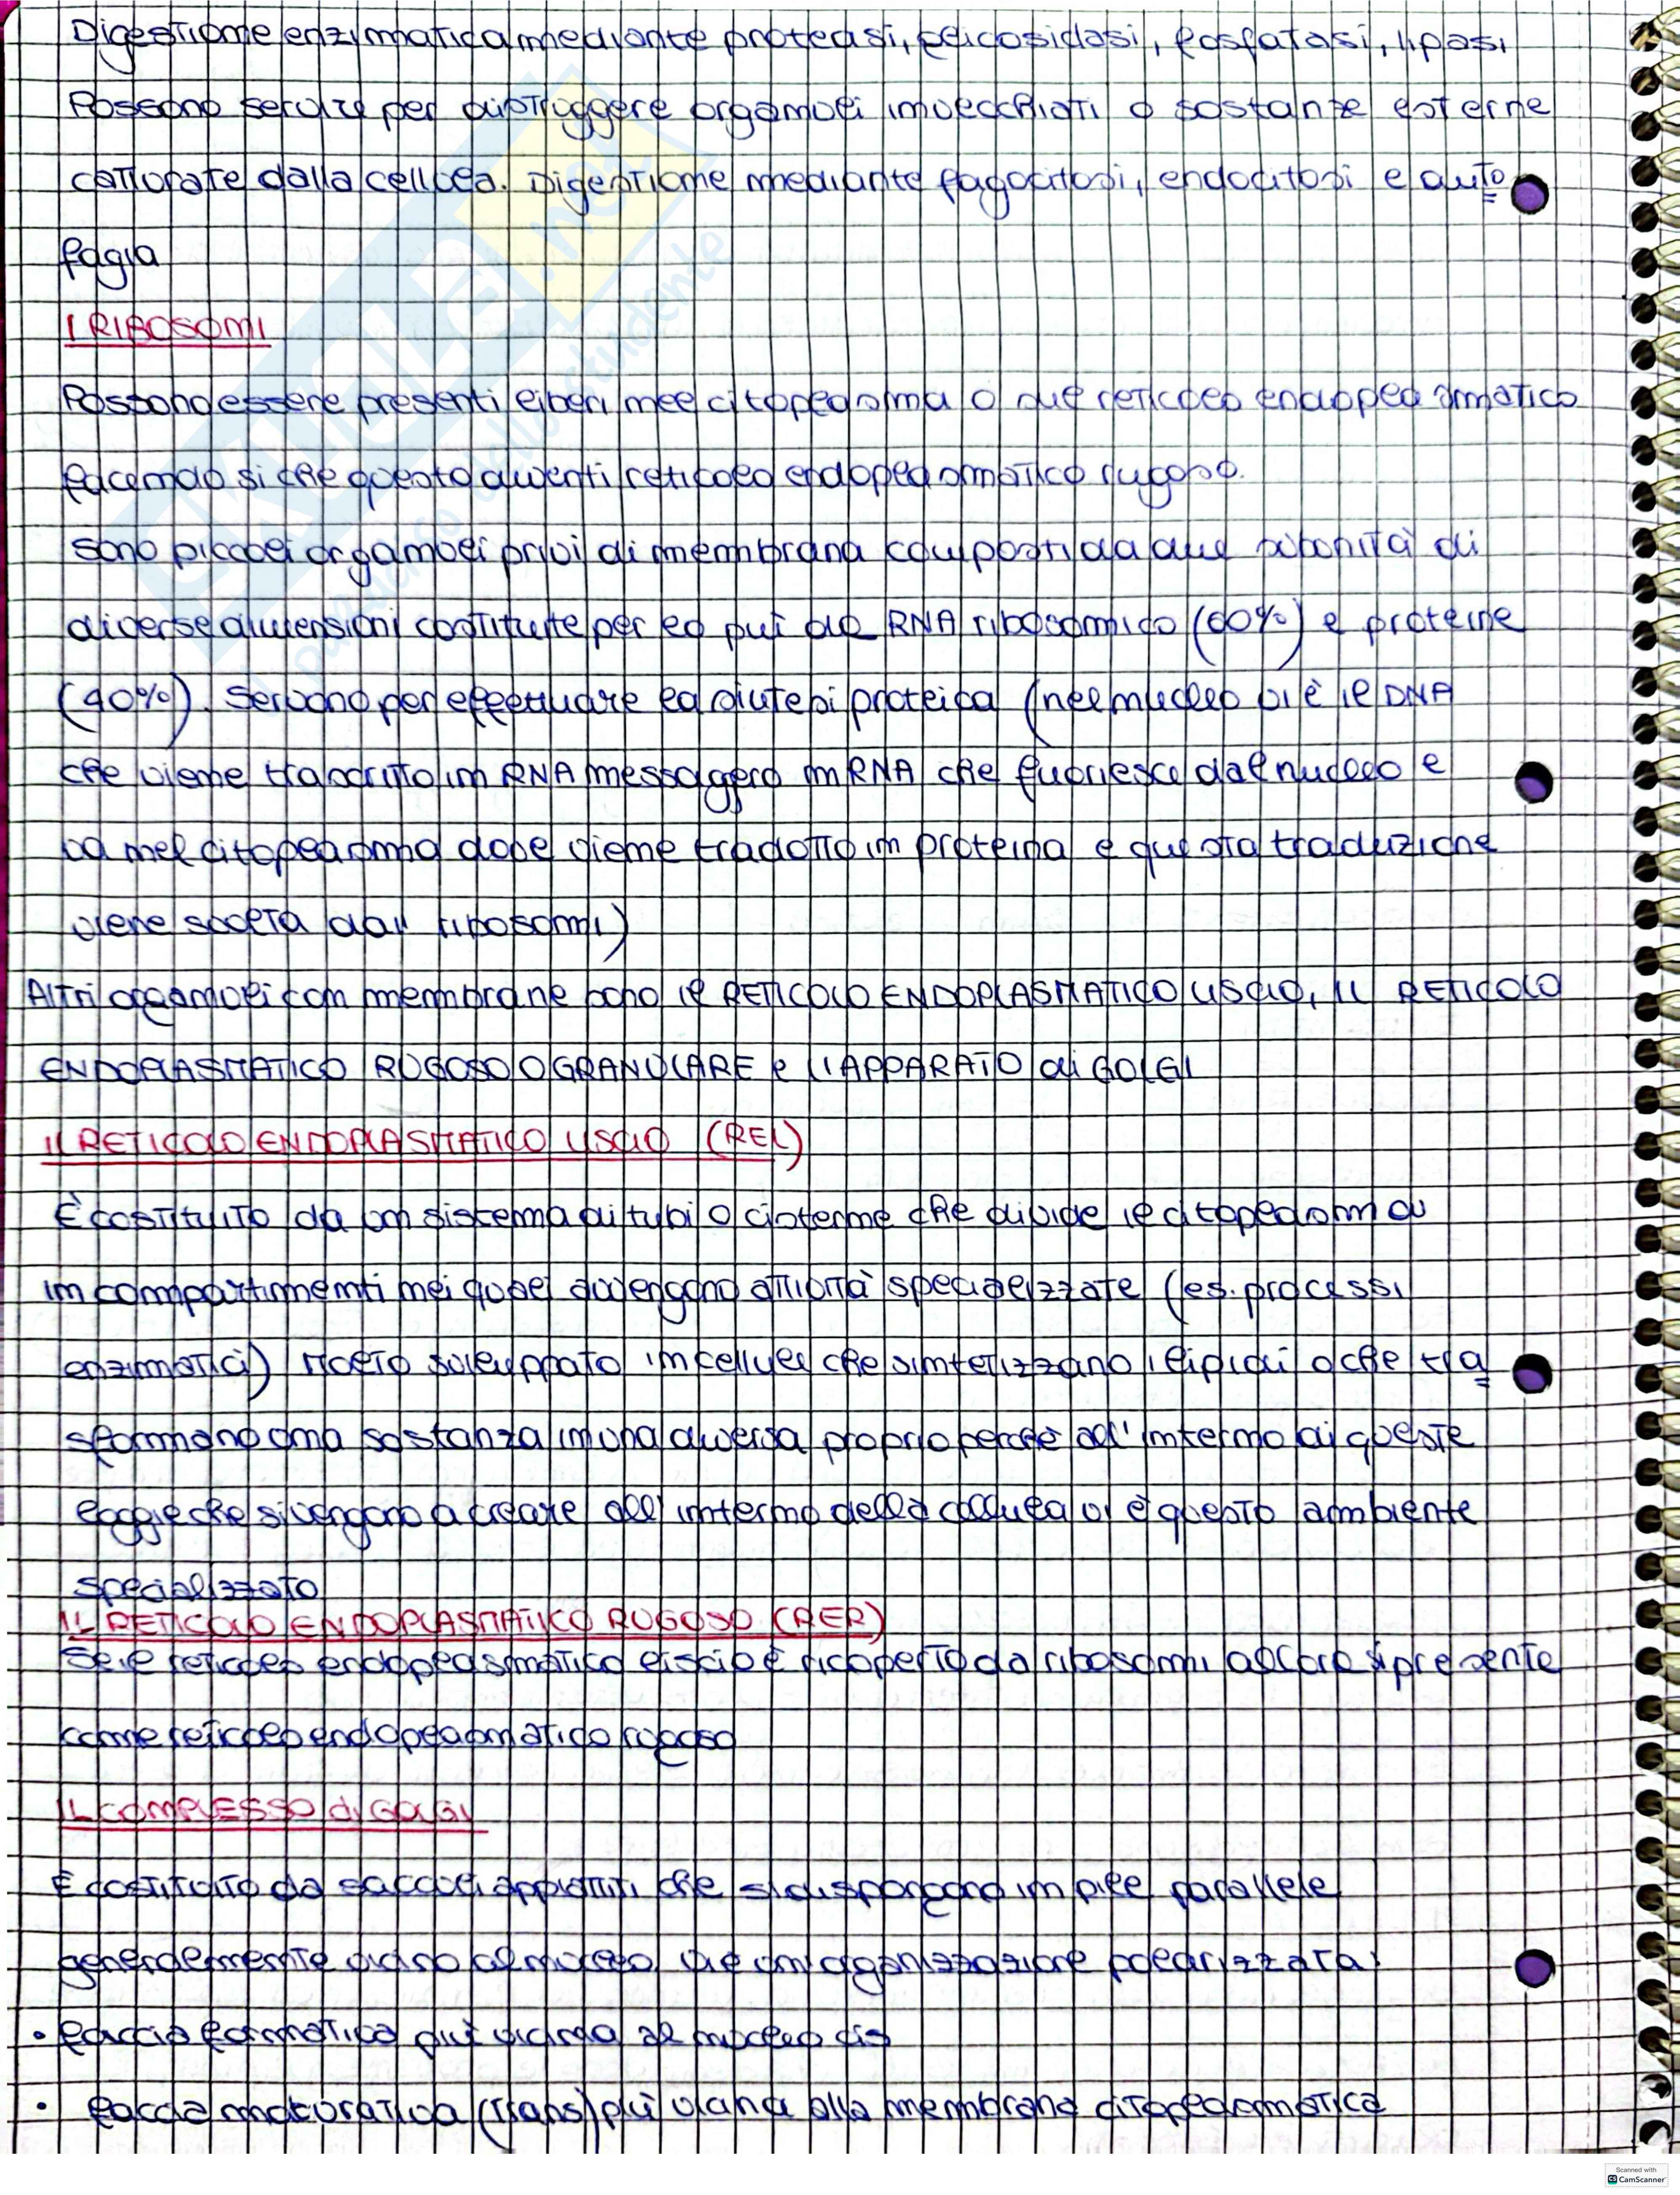 Digestione enzimatica mediante proteasi, glicosidasi, fosfatasi, lipasi
Possono servire per distruggere organuli invecchiati o sostanze esterne
catturate dalla cellula. Digestione mediante fagocitosi, endocitosi e auto
fagia
I RIBOSOMI
Possono essere presenti liberi nel citoplasma o sul reticolo endoplasmatico
facendo si che questo diventi reticolo endoplasmatico rugoso.
sono piccoli organuli privi di membrana composti da due subunità di
diverse dimensioni costituite per lo più da RNA ribosomico (60%) e proteine
(40%). Servono per effettuare la sintesi proteica (nel nucleo vi è il DNA
che viene trascritto in RNA messaggero mRNA che fuoriesce dal nucleo e
va nel citoplasma dove viene tradotto in proteina e questa traduzione
viene svolta dai ribosomi)
Altri organuli con membrane sono il RETICOLO ENDOPLASMATICO LISCIO, IL RETICOLO
ENDOPLASMATICO RUGOSO O GRANULARE e L'APPARATO di GOLGI
IL RETICOLO ENDOPLASMATICO LISCIO (REL)
È costituito da un sistema di tubi o cisterne che divide il citoplasma
in compartimenti nei quali avvengono attività specializzate (es. processi
enzimatici) molto sviluppato in cellule che sintetizzano i lipidi o che tra
sformano una sostanza in una diversa proprio perché all'interno di queste
logge che si vengono a creare all'interno della cellula vi è questo ambiente
specializzato
IL RETICOLO ENDOPLASMATICO RUGOSO (RER)
Se il reticolo endoplasmatico liscio è ricoperto da ribosomi allora si presente
come reticolo endoplasmatico rugoso
IL COMPLESSO di GOLGI
È costituito da sacculi appiattiti che si dispongono in pile parallele
generalmente vicino al nucleo. Vi è un'organizzazione polarizzata:
• faccia formativa più vicina al nucleo cis
• faccia maturativa (trans) più vicina alla membrana citoplasmatica
SKUOLA.net
il paradiso dello studente
Scanned with
CS CamScanner